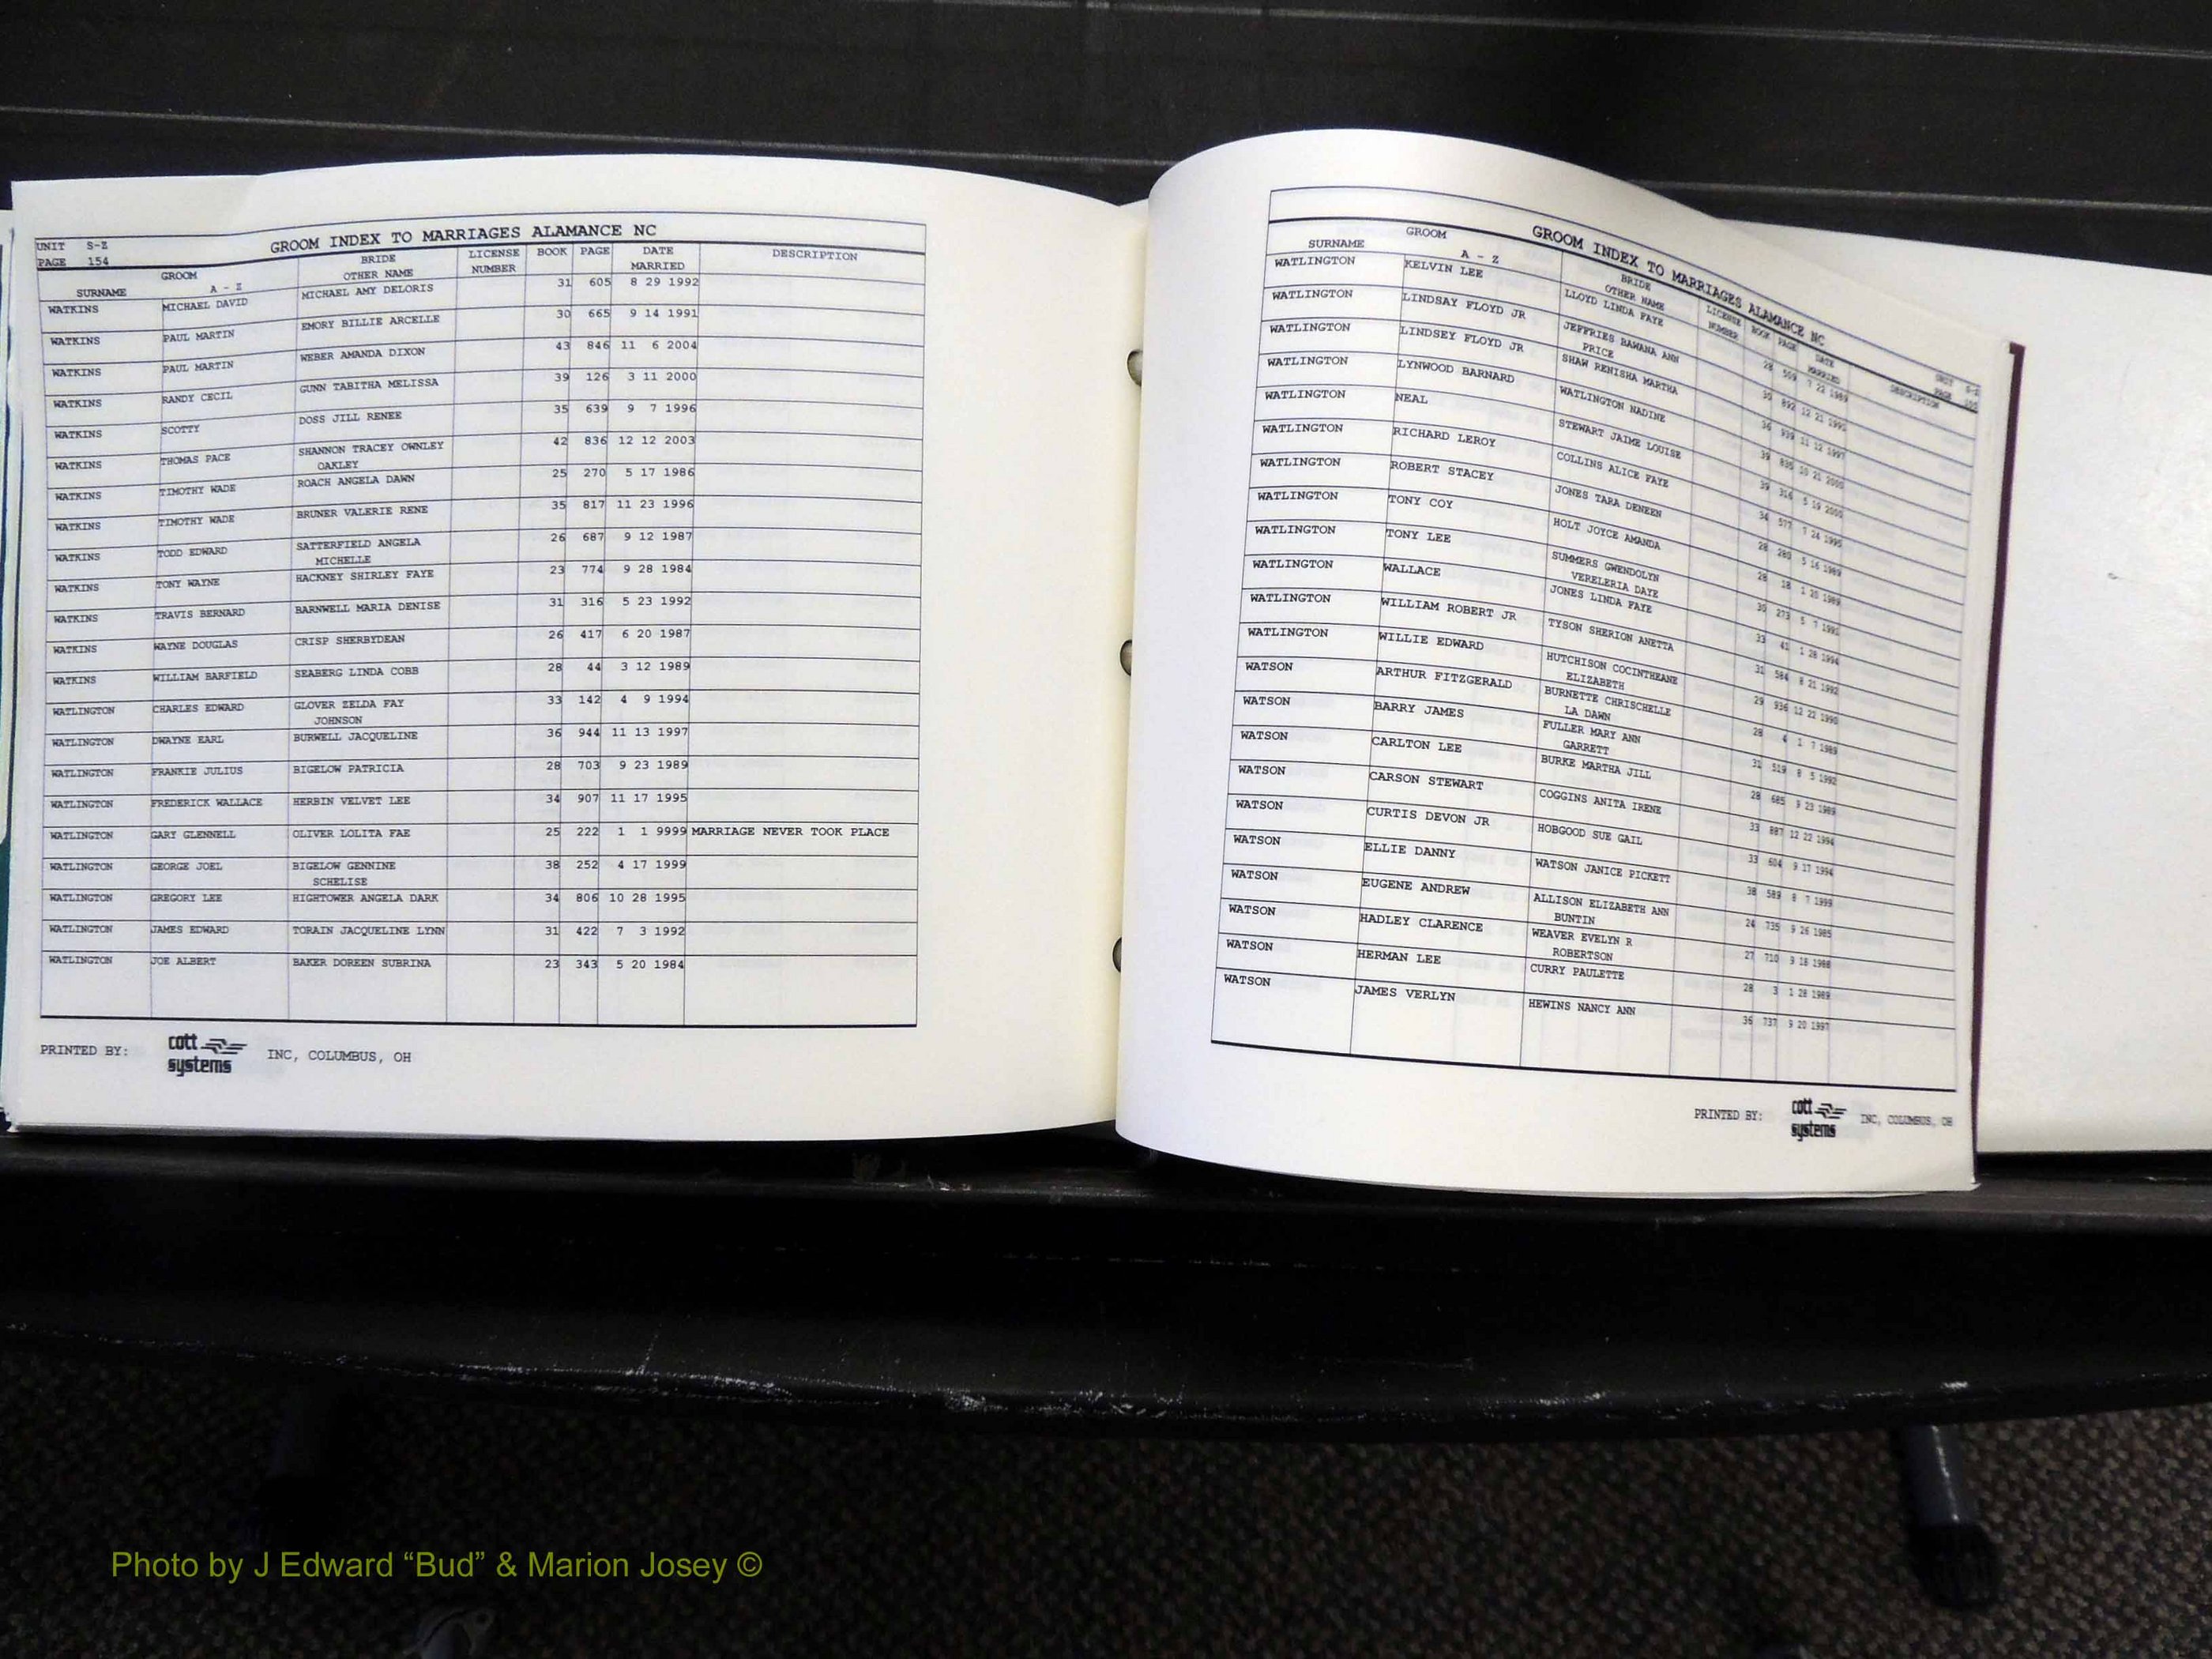 UNIT S-Z
PAGE 154
GROOM INDEX TO MARRIAGES ALAMANCE NC
SURNAME GROOM A - Z BRIDE OTHER NAME LICENSE NUMBER BOOK PAGE DATE MARRIED DESCRIPTION
WATKINS MICHAEL DAVID MICHAEL AMY DELORIS 31 605 8 29 1992
WATKINS PAUL MARTIN EMORY BILLIE ARCELLE 30 665 9 14 1991
WATKINS PAUL MARTIN WEBER AMANDA DIXON 43 846 11 6 2004
WATKINS RANDY CECIL GUNN TABITHA MELISSA 39 126 3 11 2000
WATKINS SCOTTY DOSS JILL RENEE 35 639 9 7 1996
WATKINS THOMAS PACE SHANNON TRACEY OWNLEY 42 836 12 12 2003
OAKLEY
WATKINS TIMOTHY WADE ROACH ANGELA DAWN 25 270 5 17 1986
WATKINS TIMOTHY WADE BRUNER VALERIE RENE 35 817 11 23 1996
WATKINS TODD EDWARD SATTERFIELD ANGELA 26 687 9 12 1987
MICHELLE
WATKINS TONY WAYNE HACKNEY SHIRLEY FAYE 23 774 9 28 1984
WATKINS TRAVIS BERNARD BARNWELL MARIA DENISE 31 316 5 23 1992
WATKINS WAYNE DOUGLAS CRISP SHERBYDEAN 26 417 6 20 1987
WATKINS WILLIAM BARFIELD SEABERG LINDA COBB 28 44 3 12 1989
WATLINGTON CHARLES EDWARD GLOVER ZELDA FAY 33 142 4 9 1994
JOHNSON
WATLINGTON DWAYNE EARL BURWELL JACQUELINE 36 944 11 13 1997
WATLINGTON FRANKIE JULIUS BIGELOW PATRICIA 28 703 9 23 1989
WATLINGTON FREDERICK WALLACE HERBIN VELVET LEE 34 907 11 17 1995
WATLINGTON GARY GLENNELL OLIVER LOLITA FAE 25 222 1 1 9999 MARRIAGE NEVER TOOK PLACE
WATLINGTON GEORGE JOEL BIGELOW GENNINE 38 252 4 17 1999
SCHELISE
WATLINGTON GREGORY LEE HIGHTOWER ANGELA DARK 34 806 10 28 1995
WATLINGTON JAMES EDWARD TORAIN JACQUELINE LYNN 31 422 7 3 1992
WATLINGTON JOE ALBERT BAKER DOREEN SUBRINA 23 343 5 20 1984
PRINTED BY: cott systems INC, COLUMBUS, OH
GROOM INDEX TO MARRIAGES ALAMANCE NC
UNIT S-Z
PAGE
SURNAME GROOM A - Z BRIDE OTHER NAME LICENSE NUMBER BOOK PAGE DATE MARRIED DESCRIPTION
WATLINGTON KELVIN LEE LLOYD LINDA FAYE 28 509 7 22 1989
WATLINGTON LINDSAY FLOYD JR JEFFRIES BAWANA ANN 30 892 12 21 1991
PRICE
WATLINGTON LINDSEY FLOYD JR SHAW RENISHA MARTHA 36 939 11 12 1997
WATLINGTON LYNWOOD BARNARD WATLINGTON NADINE 39 830 10 21 2000
WATLINGTON NEAL STEWART JAIME LOUISE 39 316 5 19 2000
WATLINGTON RICHARD LEROY COLLINS ALICE FAYE 34 577 7 24 1995
WATLINGTON ROBERT STACEY JONES TARA DENEEN 28 280 5 16 1989
WATLINGTON TONY COY HOLT JOYCE AMANDA 28 18 1 20 1989
WATLINGTON TONY LEE SUMMERS GWENDOLYN 30 273 5 7 1991
VERELERIA DAYE
WATLINGTON WALLACE JONES LINDA FAYE 33 41 1 28 1994
WATLINGTON WILLIAM ROBERT JR TYSON SHERION ANETTA 31 584 8 21 1992
WATLINGTON WILLIE EDWARD HUTCHISON COCINTHEANE 29 936 12 22 1990
ELIZABETH
WATSON ARTHUR FITZGERALD BURNETTE CHRISCHELLE 28 4 1 7 1989
LA DAWN
WATSON BARRY JAMES FULLER MARY ANN 31 519 8 5 1992
GARRETT
WATSON CARLTON LEE BURKE MARTHA JILL 28 685 9 23 1989
WATSON CARSON STEWART COGGINS ANITA IRENE 33 887 12 22 1994
WATSON CURTIS DEVON JR HOBGOOD SUE GAIL 33 604 9 17 1994
WATSON ELLIE DANNY WATSON JANICE PICKETT 38 589 8 7 1999
WATSON EUGENE ANDREW ALLISON ELIZABETH ANN 24 735 9 26 1985
BUNTIN
WATSON HADLEY CLARENCE WEAVER EVELYN R 27 710 9 18 1988
ROBERTSON
WATSON HERMAN LEE CURRY PAULETTE 28 3 1 28 1989
WATSON JAMES VERLYN HEWINS NANCY ANN 36 737 9 20 1997
PRINTED BY: cott systems INC, COLUMBUS, OH
Photo by J Edward “Bud” & Marion Josey ©